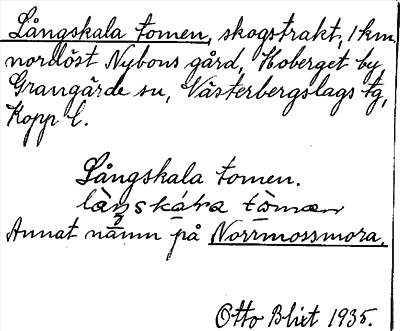 Långskala tomen, skogstrakt, 1 km.
nordöst Nybons gård, Hoberget by
Grangärde sn, Västerbergslags tg,
Kopp l.
Långskala tomen.
Annat namn på Norrmossmora.
Otto Blixt 1935.